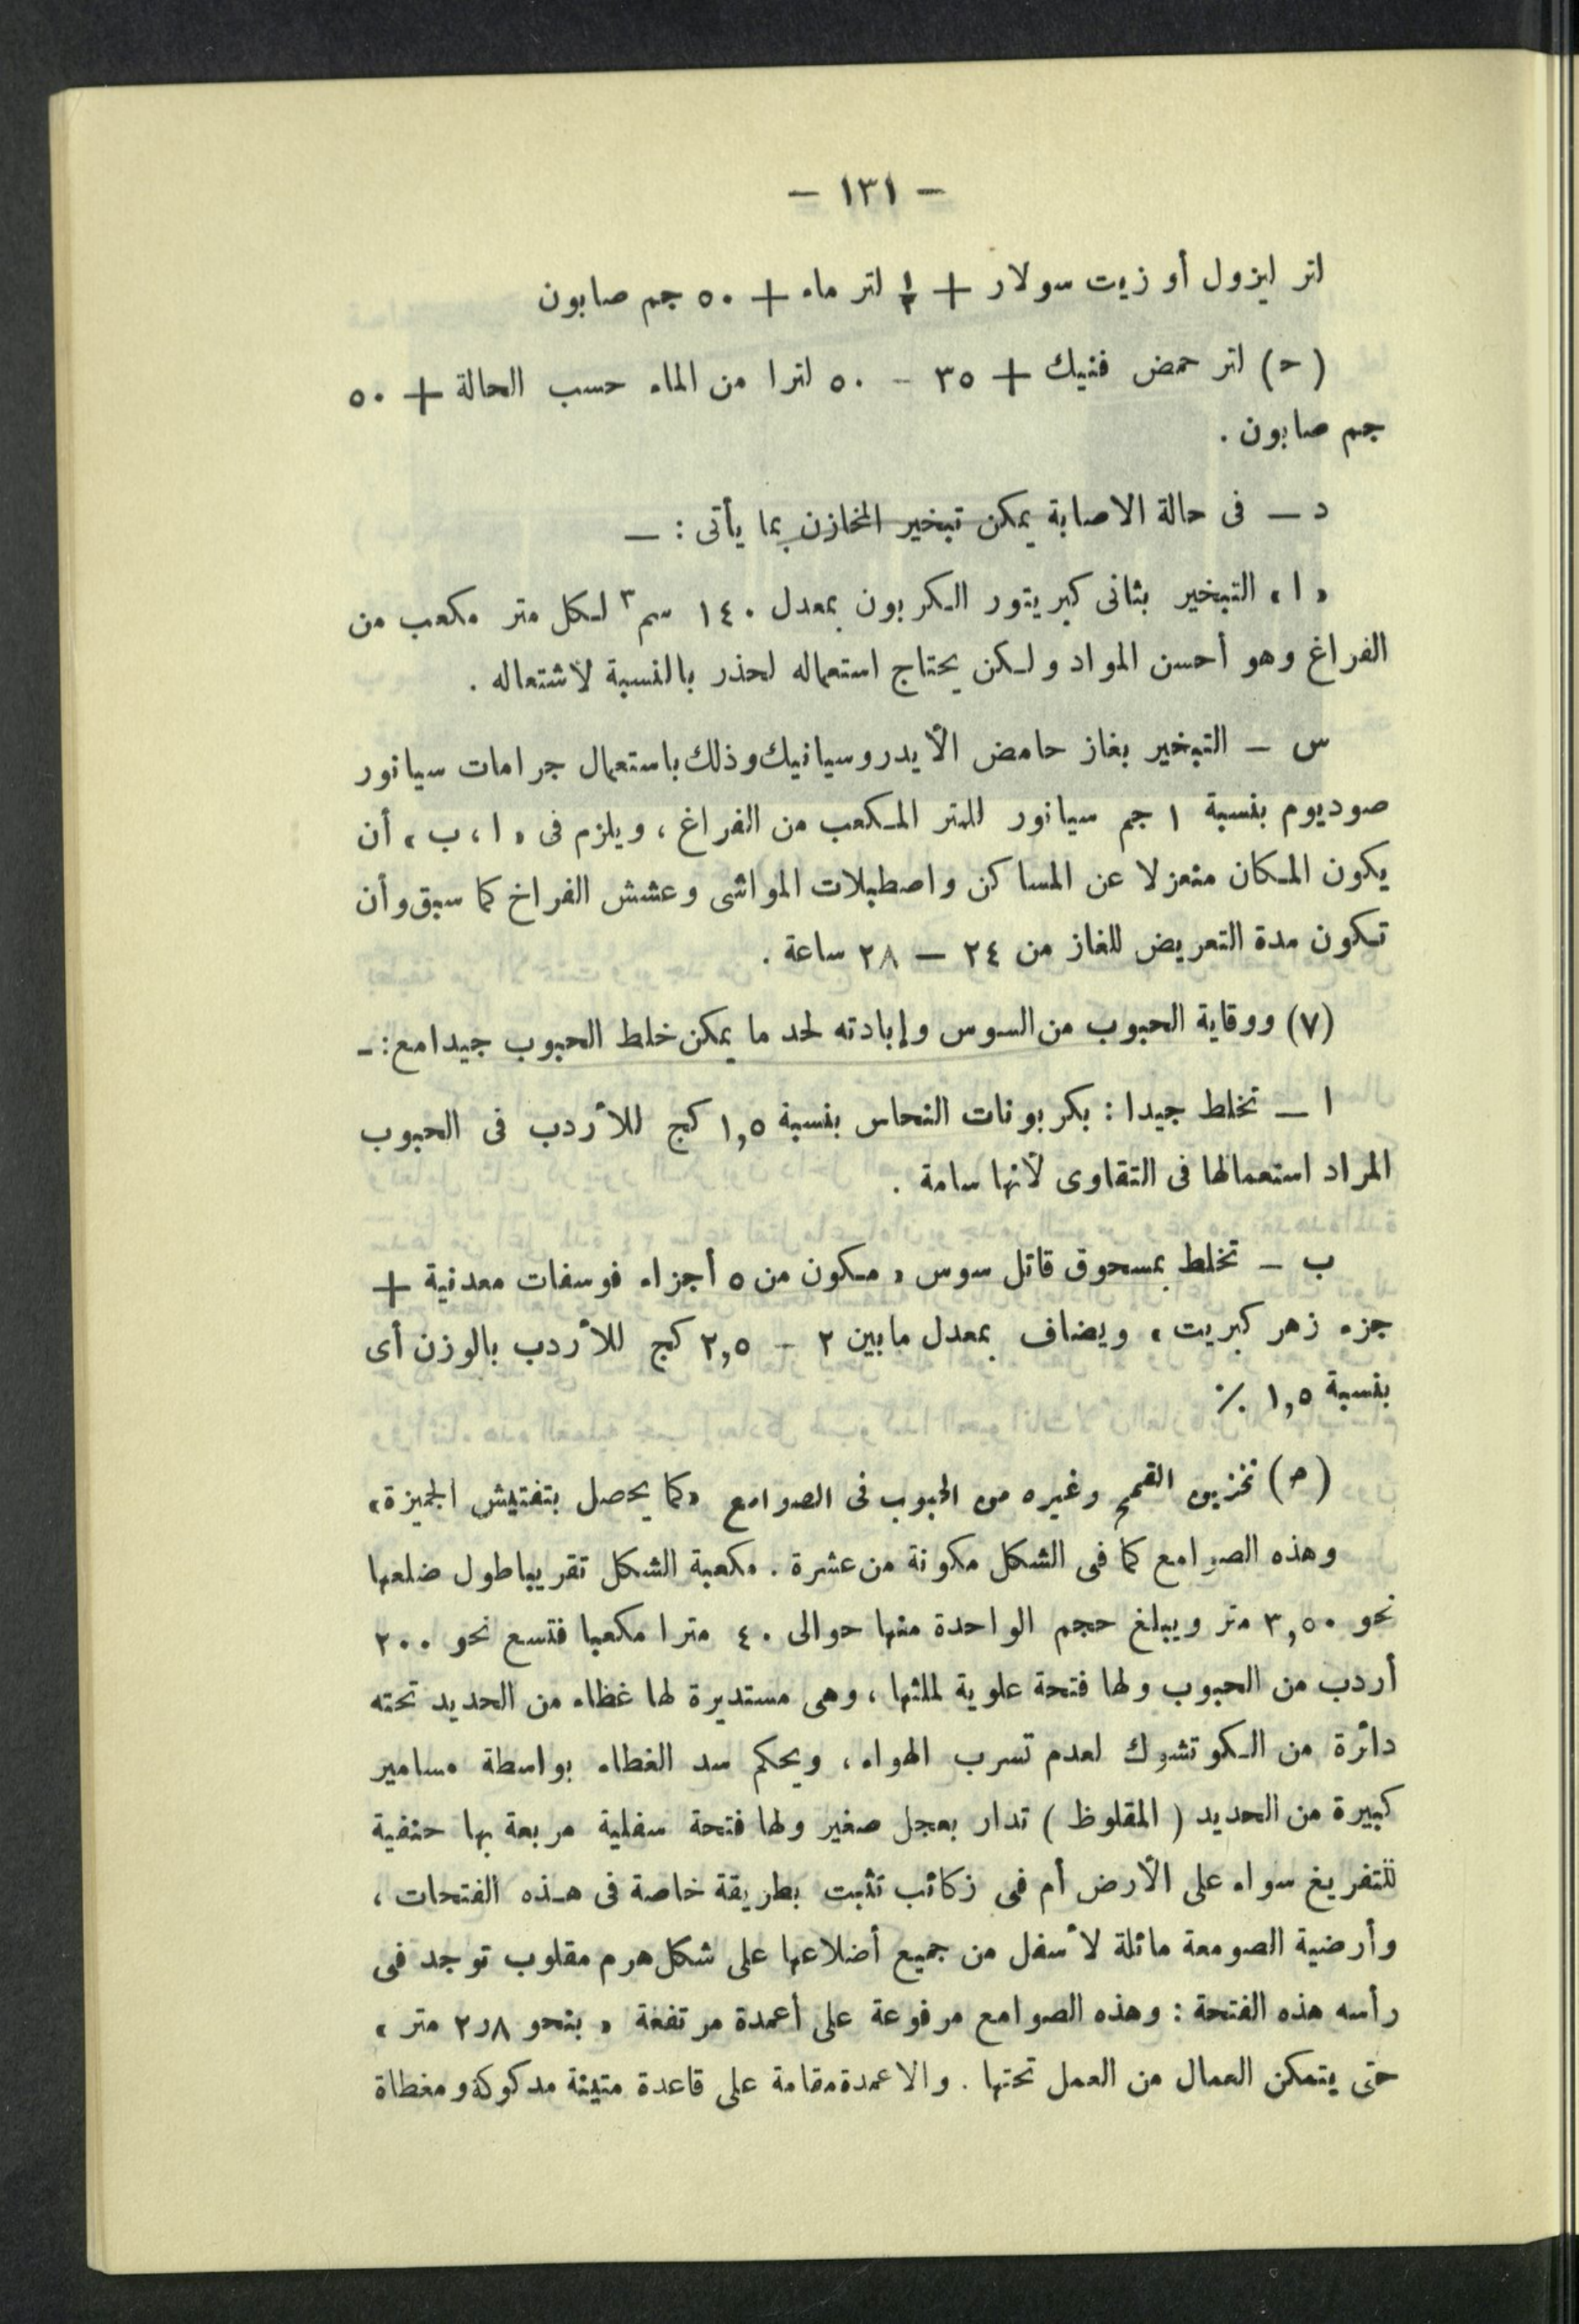 — ١٣١ —
لتر ليزول أو زيت سولار + ½ لتر ماء + ٥٠ جم صابون
(ح) لتر حمض فنيك + ٣٥ – ٥٠ لترا من الماء حسب الحالة + ٥٠
جم صابون .
د — فى حالة الاصابة يمكن تبخير المخازن بما يأتى : —
« ا » التبخير بثانى كبريتور الكربون بمعدل ١٤٠ سم٣ لكل متر مكعب من
الفراغ وهو أحسن المواد ولكن يحتاج استعماله لحذر بالنسبة لاشتعاله .
س – التبخير بغاز حامض الأيدروسيانيك وذلك باستعمال جرامات سيانور
صوديوم بنسبة ١ جم سيانور للمتر المكعب من الفراغ ، ويلزم فى « ا ، ب » أن
يكون المكان منعزلا عن المساكن واصطبلات المواشى وعشش الفراخ كما سبق وأن
تكون مدة التعريض للغاز من ٢٤ — ٢٨ ساعة .
(٧) ووقاية الحبوب من السوس وإبادته لحد ما يمكن خلط الحبوب جيدا مع : –
ا — تخلط جيدا : بكربونات النحاس بنسبة ١,٥ كج للأردب فى الحبوب
المراد استعمالها فى التقاوى لأنها سامة .
ب – تخلط بمسحوق قاتل سوس « مكون من ٥ أجزاء فوسفات معدنية +
جزء زهر كبريت » ويضاف بمعدل مابين ٢ – ٢,٥ كج للأردب بالوزن أى
بنسبة ١,٥ ٪
(ح) تخزين القمح وغيره من الحبوب فى الصوامع «كما يحصل بتفتيش الجميزة»
وهذه الصوامع كما فى الشكل مكونة من عشرة . مكعبة الشكل تقريبا طول ضلعها
نحو ٣,٥٠ متر ويبلغ حجم الواحدة منها حوالى ٤٠ مترا مكعبا فتسع نحو ٢٠٠
أردب من الحبوب ولها فتحة علوية لملئها ، وهى مستديرة لها غطاء من الحديد تحته
دائرة من الكوتشوك لعدم تسرب الهواء ، ويحكم سد الغطاء بواسطة مسامير
كبيرة من الحديد ( المقلوظ ) تدار بعجل صغير ولها فتحة سفلية مربعة بها حنفية
للتفريغ سواء على الأرض أم فى زكائب تثبت بطريقة خاصة فى هذه الفتحات ،
وأرضية الصومعة مائلة لأسفل من جميع أضلاعها على شكل هرم مقلوب توجد فى
رأسه هذه الفتحة : وهذه الصوامع مرفوعة على أعمدة مرتفعة « بنحو ٢٫٨ متر »
حتى يتمكن العمال من العمل تحتها . والاعمدة مقامة على قاعدة متينة مدكوكة ومغطاة